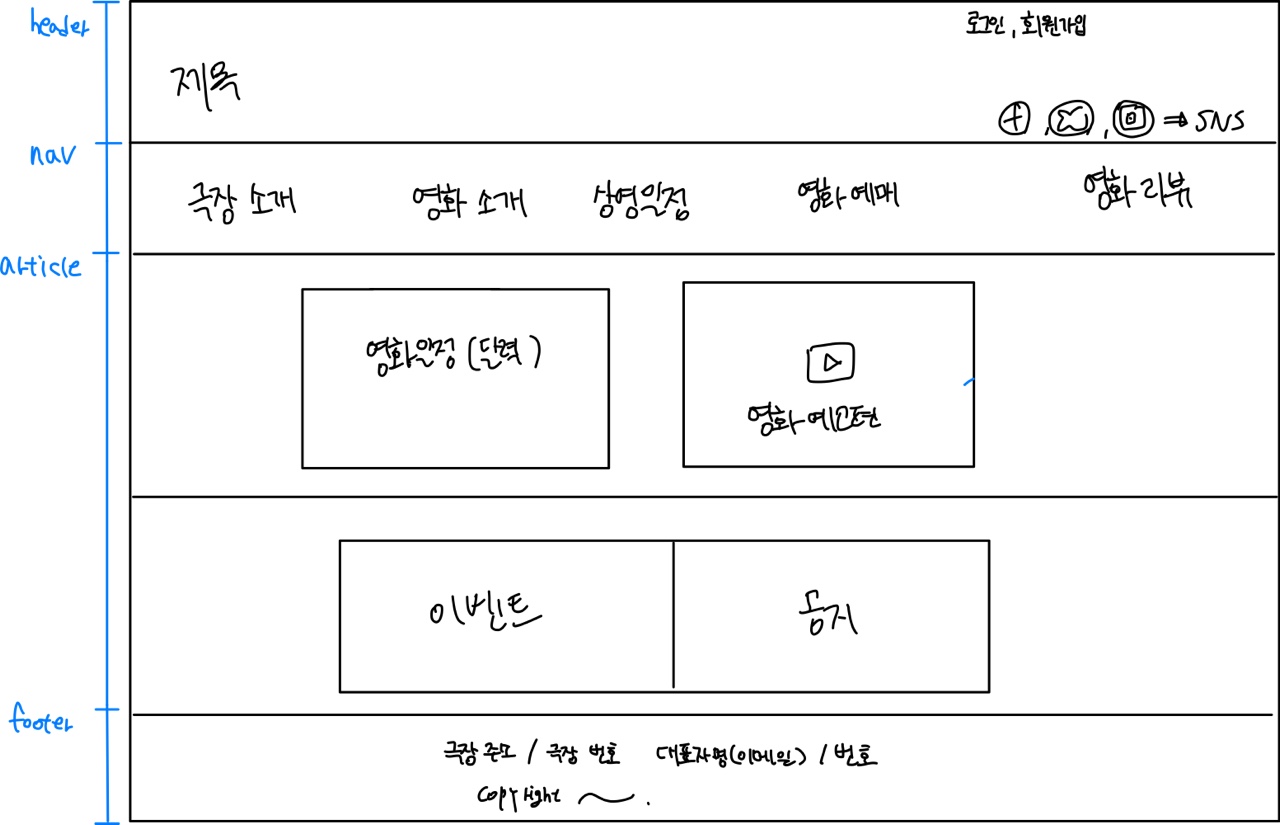 header
로그인, 회원가입
제목
f, , ⇒ SNS
nav
극장 소개 영화 소개 상영일정 영화 예매 영화 리뷰
article
영화일정 (달력)
영화 예고편
이벤트 공지
footer
극장 주소 / 극장 번호 대표자명(이메일) / 번호
Copyright ~ .